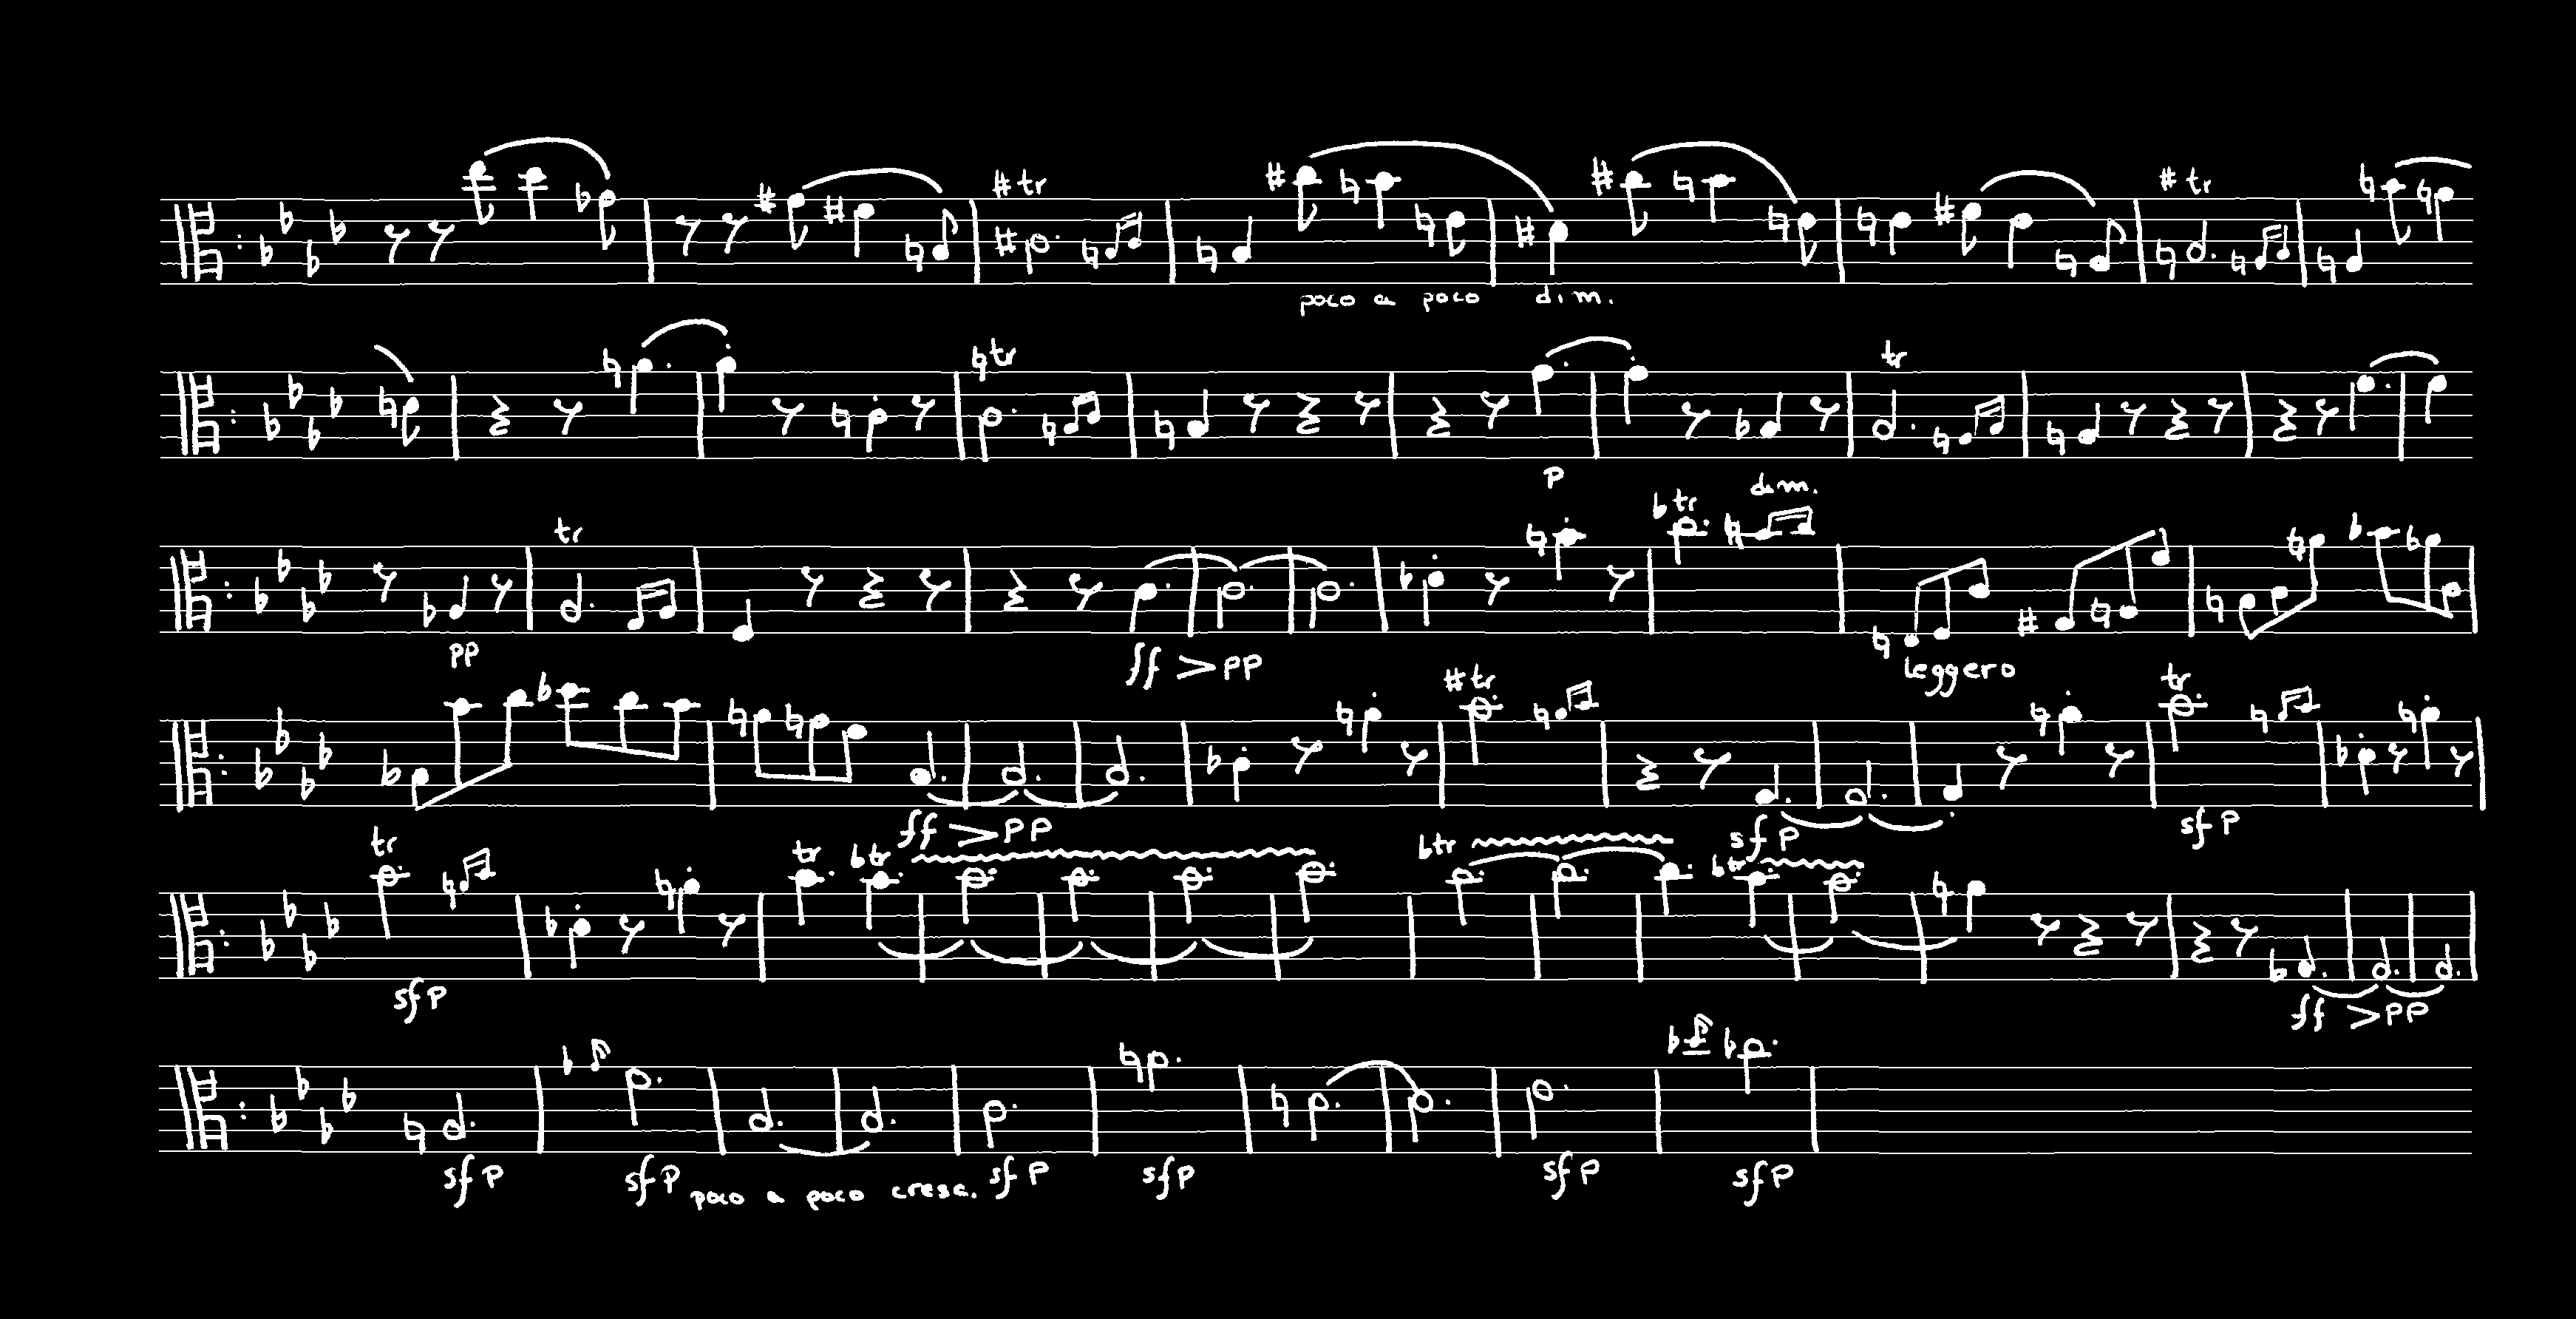 tr tr
poco a poco dim.
tr tr
p
tr tr dim.
pp ff pp leggero
tr tr
ff pp sfp sfp
tr tr tr tr tr
sfp ff pp
sfp sfp poco a poco cresc. sfp sfp sfp sfp